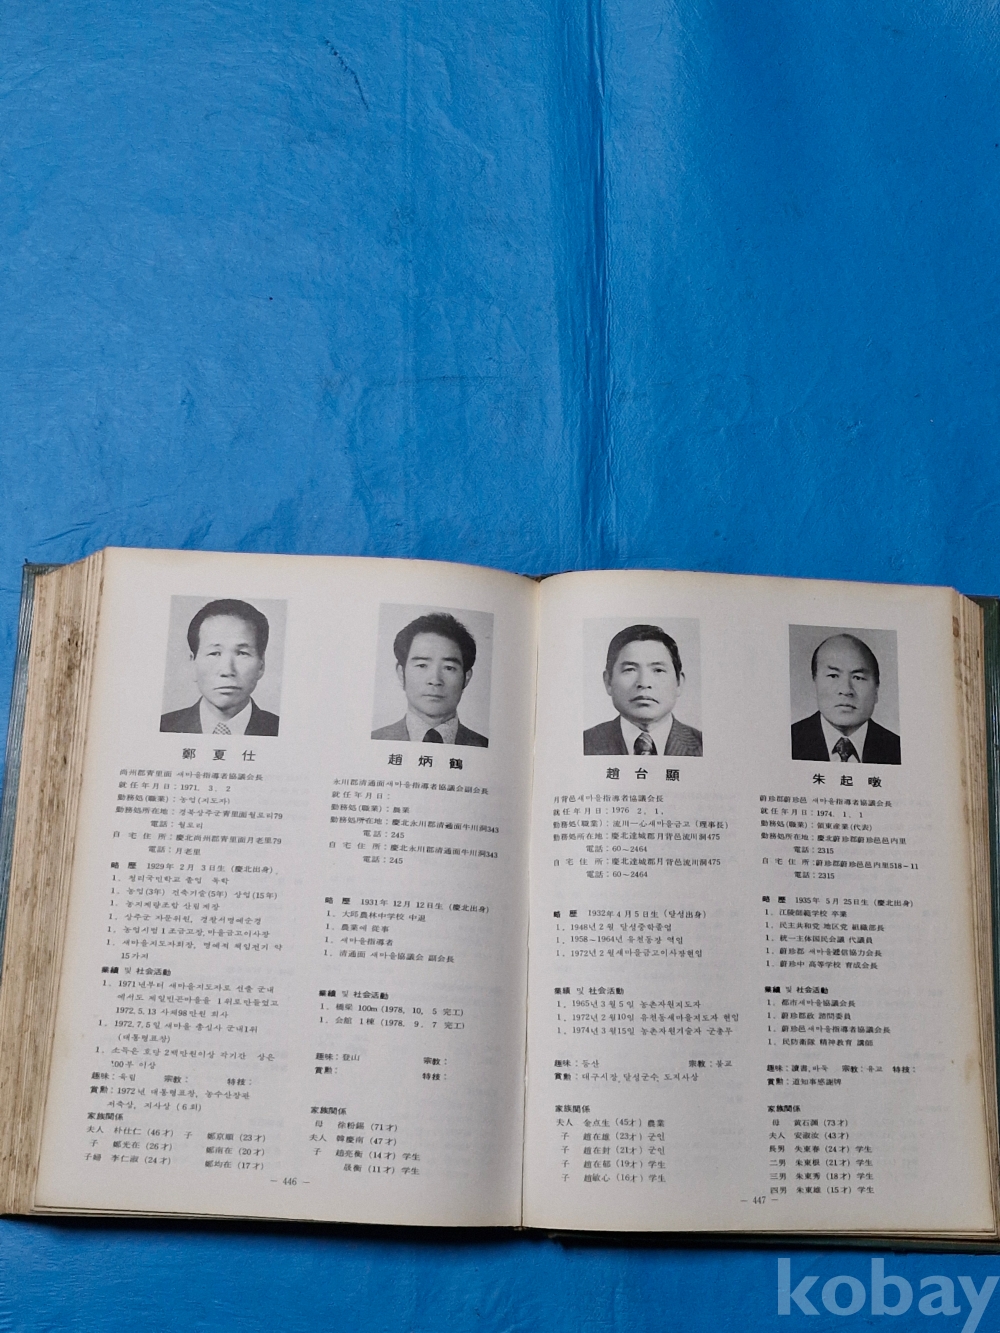 鄭夏仕
尙州郡靑里面 새마을指導者協議会長
就任年月日：1971. 3. 2
勤務処(職業)：농업(지도자)
勤務処所在地：경북상주군青里面월로리79
電話：월로리
自宅住所：慶北尙州郡青里面月老里79
電話：月老里
略歷 1929年 2月 3日生(慶北出身)
1. 청리국민학교 졸업 독학
1. 농업(3年) 건축기술(5年) 상업(15年)
1. 농지개량조합 산림계장
1. 상주군 자문위원, 경찰서명예순경
1. 농업시범 1조금고장, 마을금고이사장
1. 새마을지도자회장, 명예적 책임전지 약
15가지
業績 및 社会活動
1. 1971년부터 새마을지도자로 선출 군내
에서도 제일빈곤마을을 1위로만들었고
1972.5.13 사채98만원 희사
1. 1972.7.5일 새마을 총심사 군내1위
(대통령표창)
1. 소득은 호당 2백만원이상 작기간 삼은
100부 이상
趣味：독림 宗教： 特技：
賞勲：1972년 대통령표창, 농수산장관
저축상, 지사상 (6회)
家族関係
夫人 朴仕仁 (46才) 子 鄭京順 (23才)
子 鄭光在 (26才) 鄭南在 (20才)
子婦 李仁淑 (24才) 鄭均在 (17才)
― 446 ―
趙炳鶴
永川郡清通面새마을指導者協議会副会長
就任年月日：
勤務処(職業)：農業
勤務処所在地：慶北永川郡清通面牛川洞343
電話：245
自宅住所：慶北永川郡清通面牛川洞343
電話：245
略歷 1931年 12月 12日生(慶北出身)
1. 大邱農林中学校 中退
1. 農業에 從事
1. 새마을指導者
1. 清通面 새마을協議会 副会長
業績 및 社会活動
1. 橋梁 100m (1978. 10. 5 完工)
1. 会館 1棟 (1978. 9. 7 完工)
趣味：登山 宗教：
賞勲： 特技：
家族関係
母 徐粉錫 (71才)
夫人 韓慶南 (47才)
子 趙亮衡 (14才) 学生
晟衡 (11才) 学生
趙台顯
月背邑새마을指導者協議会長
就任年月日：1976. 2. 1.
勤務処(職業)：流川一心새마을금고 (理事長)
勤務処所在地：慶北達城郡月背邑流川洞475
電話：60~2464
自宅住所：慶北達城郡月背邑流川洞475
電話：60~2464
略歷 1932年 4月 5日生 (달성出身)
1. 1948년 2월 달성중학졸업
1. 1958~1964년 유천동장 역임
1. 1972년 2월 새마을금고이사장현임
業績 및 社会活動
1. 1965년 3월 5일 농촌자원지도자
1. 1972년 2월10일 유천동새마을지도자 현임
1. 1974년 3월15일 농촌자원기술자 군총무
趣味：등산 宗教：불교
賞勲：대구시장, 달성군수, 도지사상
家族関係
夫人 金点生 (45才) 農業
子 趙在雄 (23才) 군인
子 趙在封 (21才) 군인
子 趙在郁 (19才) 学生
子 趙敏心 (16才) 学生
朱起暾
蔚珍郡蔚珍邑 새마을指導者協議会長
就任年月日：1974. 1. 1
勤務処(職業)：領東産業(代表)
勤務処所在地：慶北蔚珍郡蔚珍邑邑内里
電話：2315
自宅住所：蔚珍郡蔚珍邑邑内里518-11
電話：2315
略歷 1935年 5月 25日生(慶北出身)
1. 江陵師範学校 卒業
1. 民主共和党 地区党 組織部長
1. 統一主体国民会議 代議員
1. 蔚珍郡 새마을通信協力会長
1. 蔚珍中 高等学校 育成会長
業績 및 社会活動
1. 都市새마을協議会長
1. 蔚珍郡政 諮問委員
1. 蔚珍邑새마을指導者協議会長
1. 民防衛隊 精神教育 講師
趣味：讀書, 바둑 宗教：유교 特技：
賞勲：道知事感謝牌
家族関係
母 黄石調 (73才)
夫人 安淑汝 (43才)
長男 朱東春 (24才) 学生
二男 朱東根 (21才) 学生
三男 朱東秀 (18才) 学生
四男 朱東雄 (15才) 学生
― 447 ―
kobay